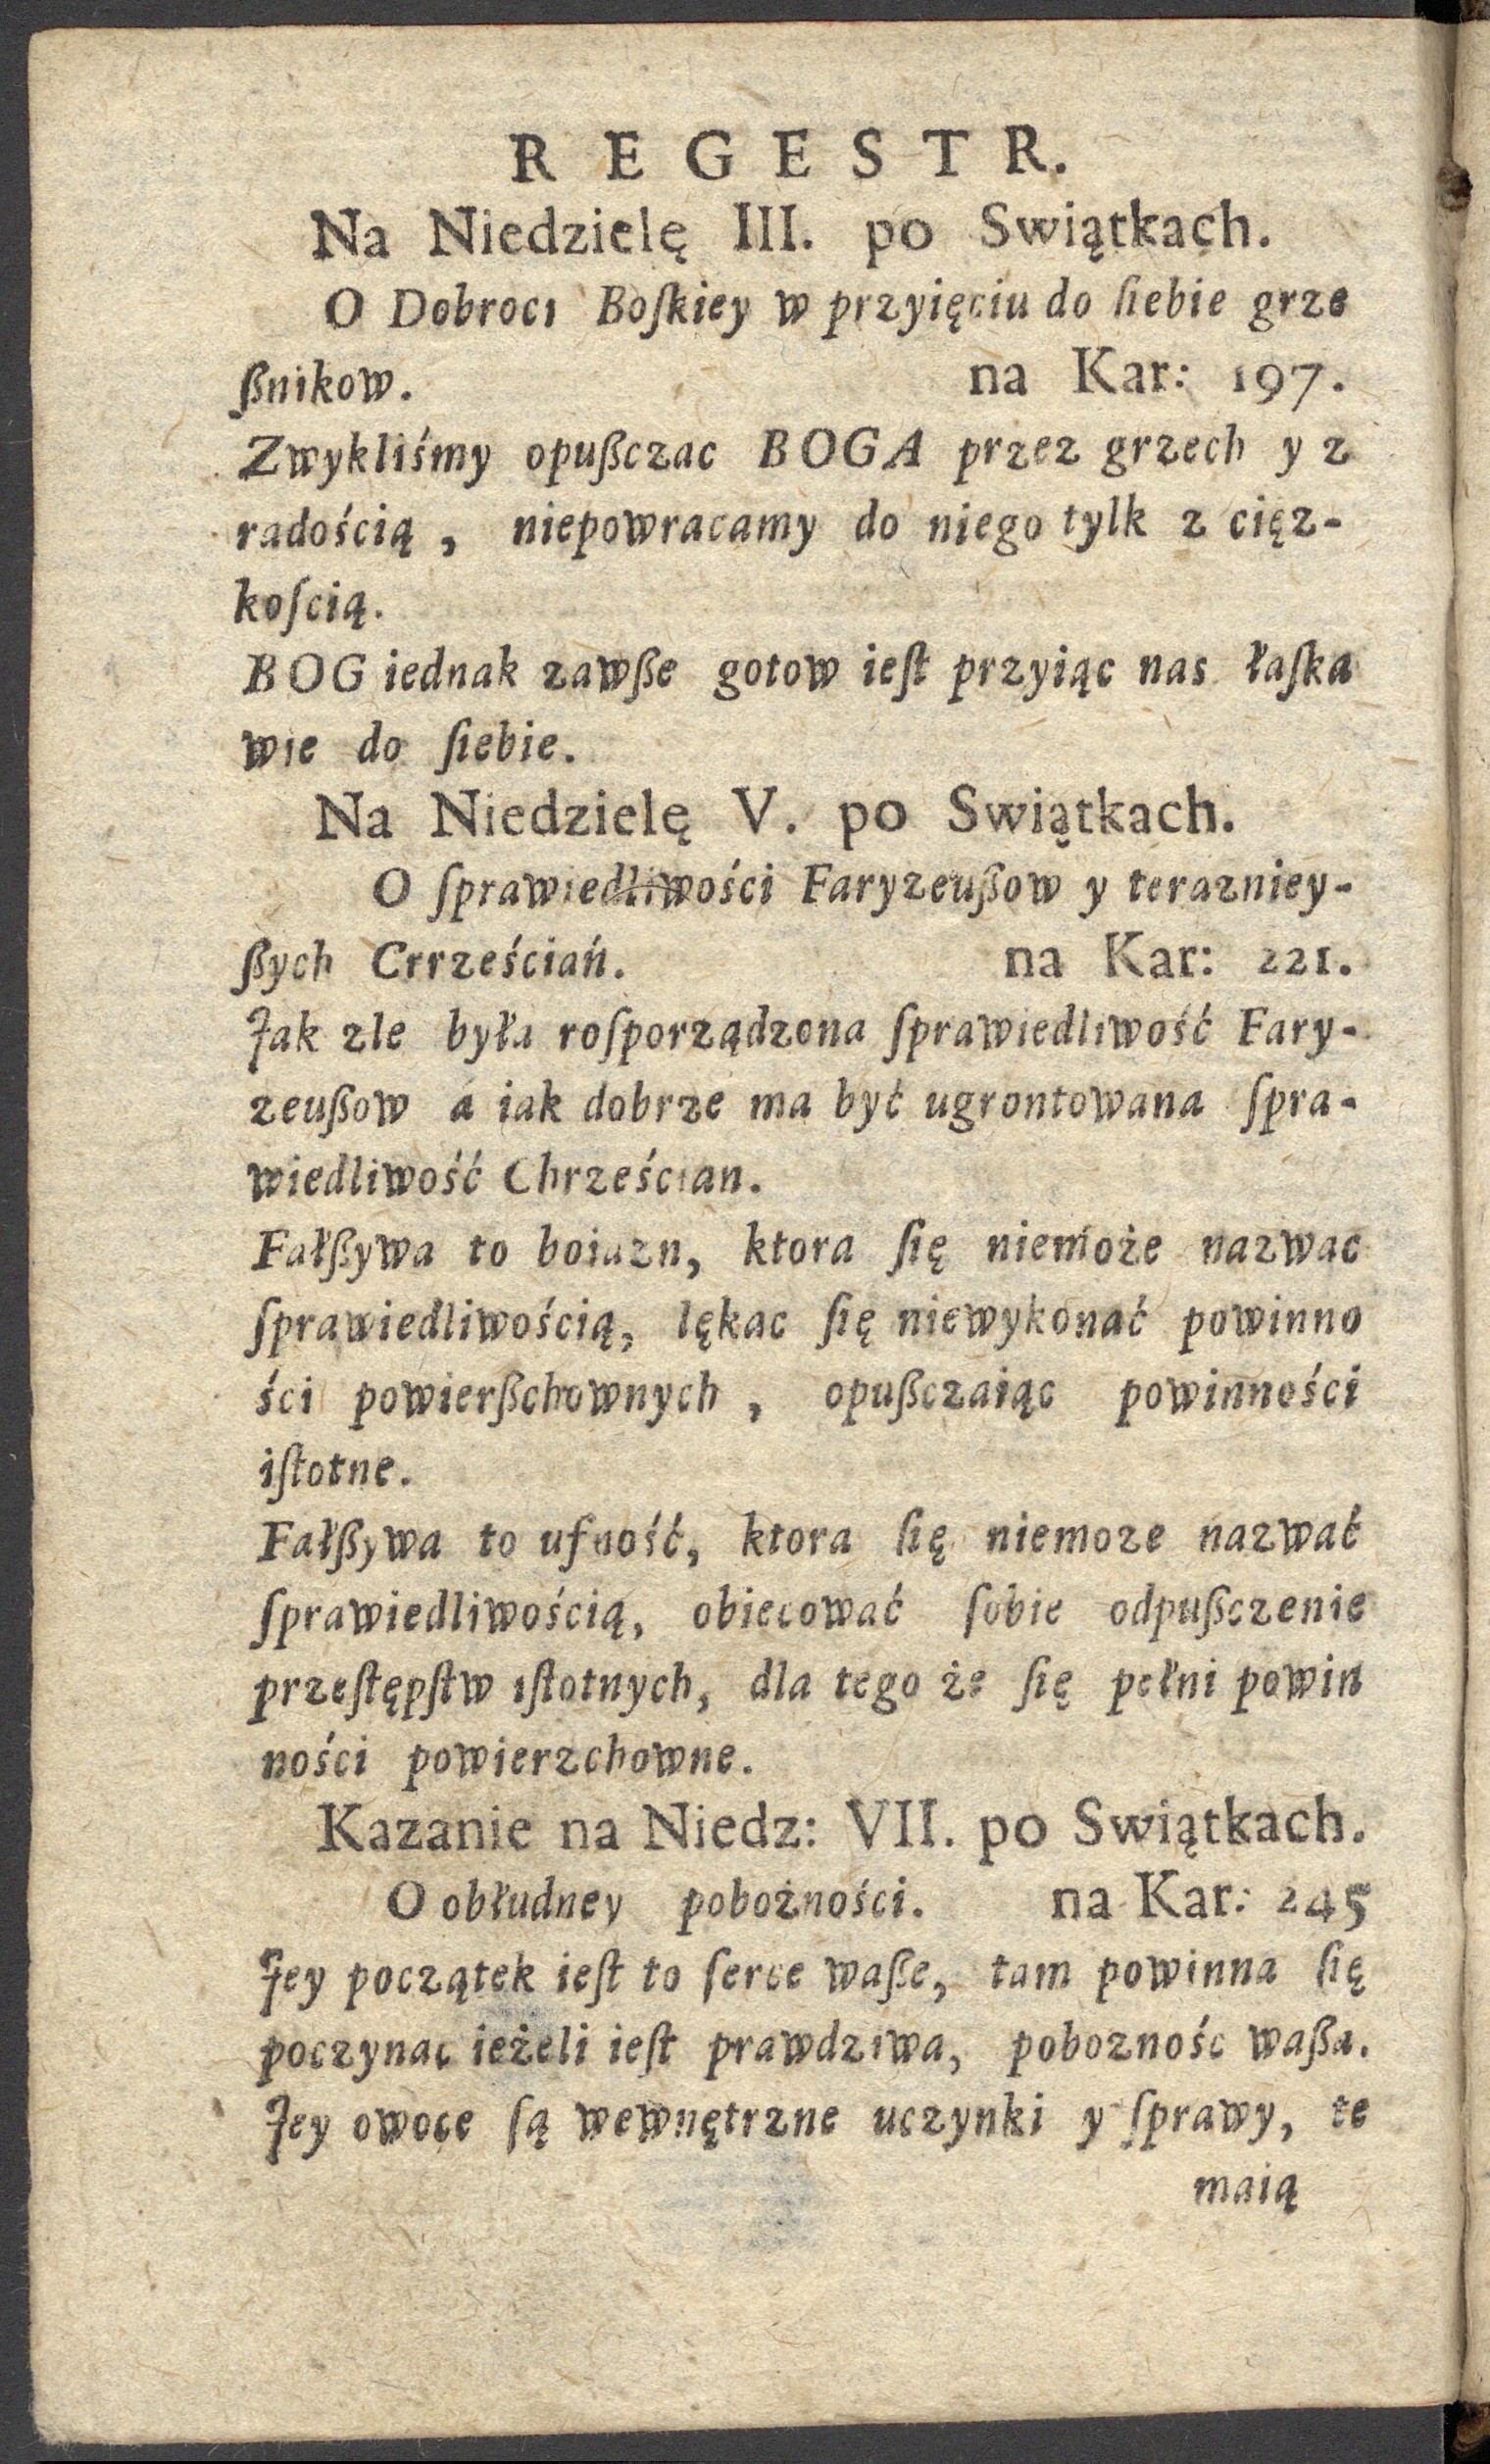 REGESTR.
Na Niedzielę III. po Swiątkach.
O Dobroci Boſkiey w przyięciu do ſiebie grze
ßnikow. na Kar: 197.
Zwykliśmy opußczac BOGA przez grzech y z
radością, niepowracamy do niego tylk z cięz-
koſcią.
BOG iednak zawße gotow ieſt przyiąc nas łaſka
wie do ſiebie.
Na Niedzielę V. po Swiątkach.
O ſprawiedliwości Faryzeußow y terazniey-
ßych Crrześciań. na Kar: 221.
Jak zle była roſporządzona ſprawiedliwość Fary-
zeußow a iak dobrze ma być ugrontowana ſpra-
wiedliwość Chrześcian.
Fałßywa to boiazn, ktora ſię niemoże nazwac
ſprawiedliwością, lękac ſię niewykonać powinno
ści powierßchownych, opußczaiąc powinności
iſtotne.
Fałßywa to ufność, ktora ſię niemoze nazwać
ſprawiedliwością, obiecować ſobie odpußczenie
przeſtępſtw iſtotnych, dla tego że ſię pełni powin
ności powierzchowne.
Kazanie na Niedz: VII. po Swiątkach.
O obłudney pobożności. na Kar: 245
Jey początek ieſt to ſerce waße, tam powinna ſię
poczynac ieżeli ieſt prawdziwa, pobozność waßa.
Jey owoce ſą wewnętrzne uczynki y ſprawy, te
maią